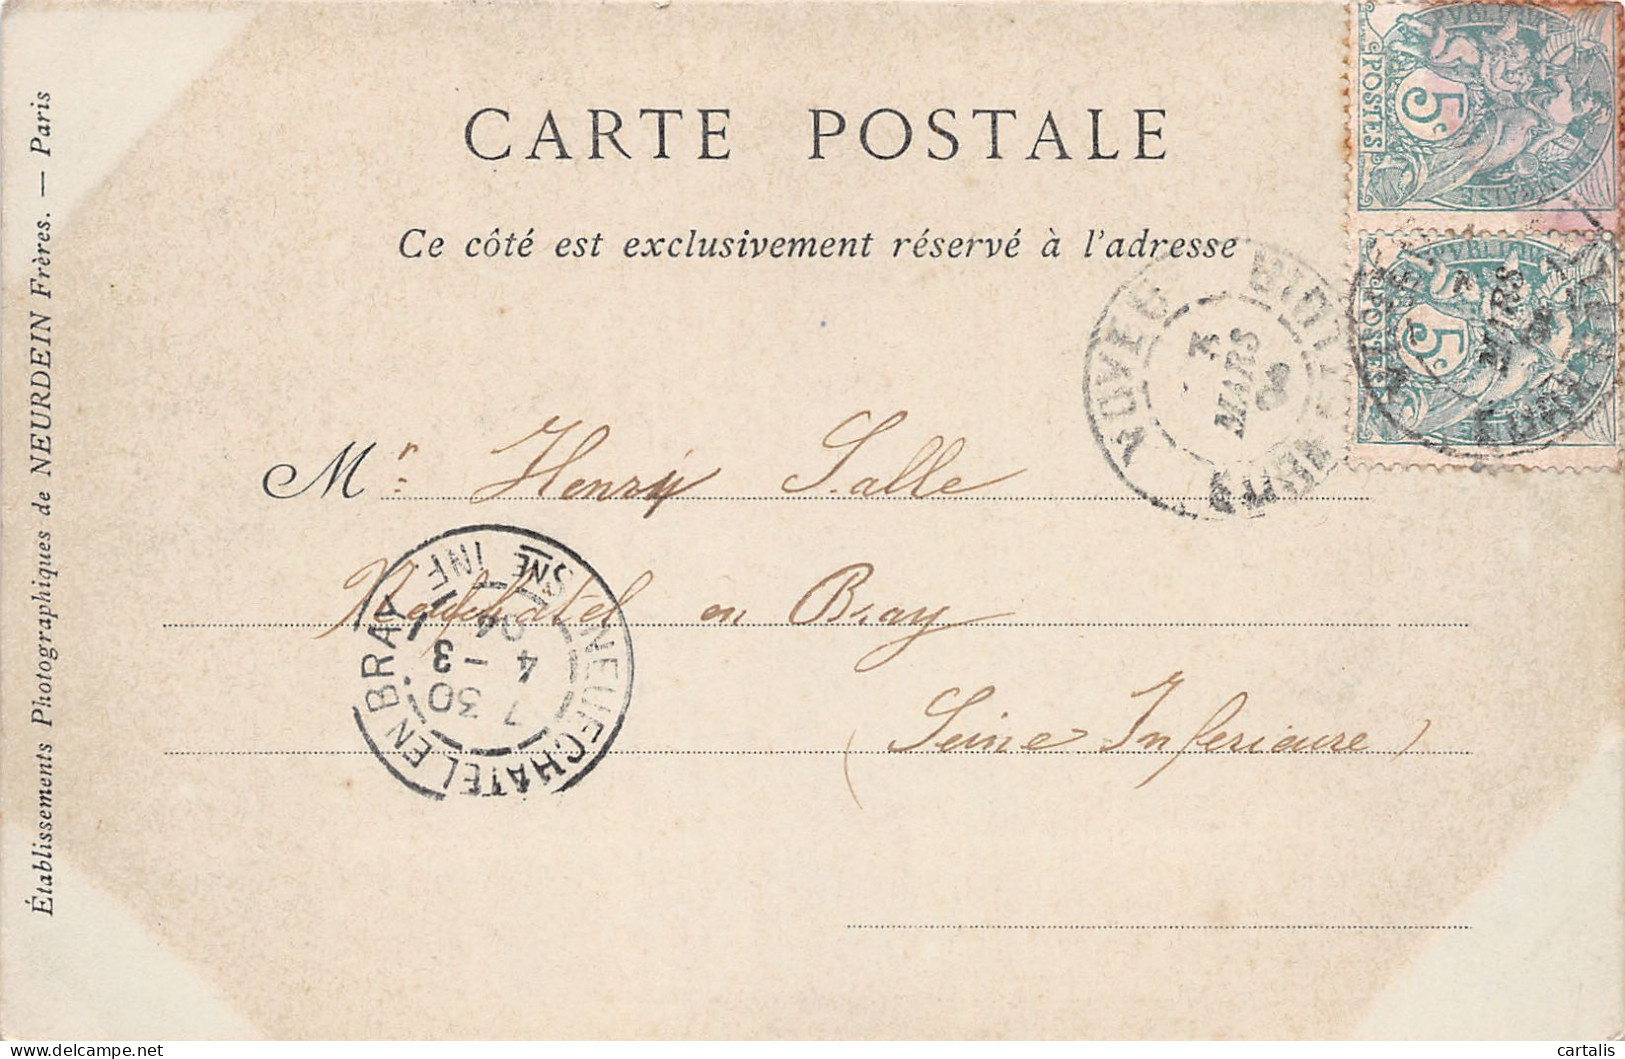 CARTE POSTALE
Ce côté est exclusivement réservé à l'adresse
Établissements Photographiques de NEURDEIN Frères. — Paris
POSTES
5c
POSTES
5c
MARS
MARS
Mr Henry Salle
Neufchatel en Bray
(Seine Inferieure)
NEUFCHATEL EN BRAY
SNE INF.
7 30
4 - 3
04
delcampe.net
cartalis